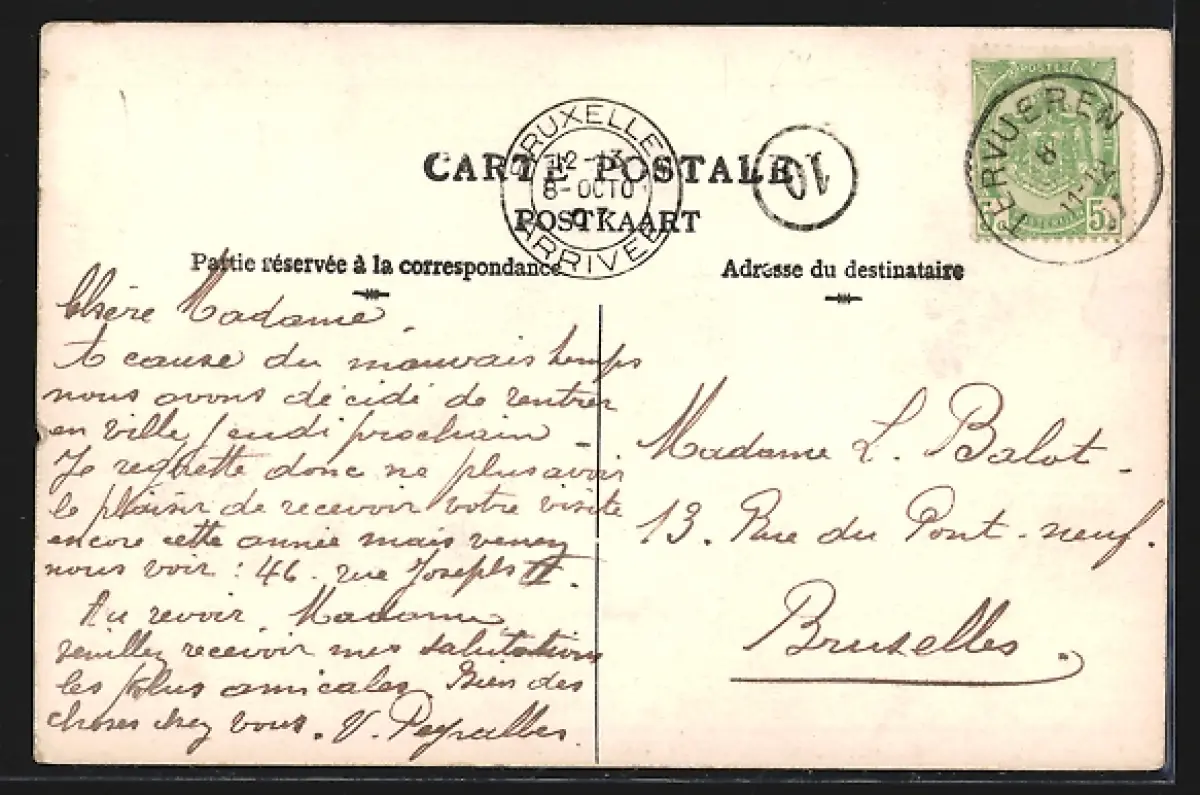 CARTE POSTALE
POSTKAART
BRUXELLES
12-13
8-OCTO
07
ARRIVEE
10
POSTES
5 5
TERVUEREN
8
11-12
Partie réservée à la correspondance
Adresse du destinataire
Chère Madame.
A cause du mauvais temps
nous avons décidé de rentrer
en ville jeudi prochain -
Je regrette donc ne plus avoir
le plaisir de recevoir votre visite
encore cette année mais venez
nous voir : 46. rue Joseph II.
Au revoir Madame
veuillez recevoir mes salutations
les plus amicales. Bien des
choses chez vous. V. Peyralbes.
Madame L. Balot.
13. Rue du Pont-neuf.
Bruxelles.